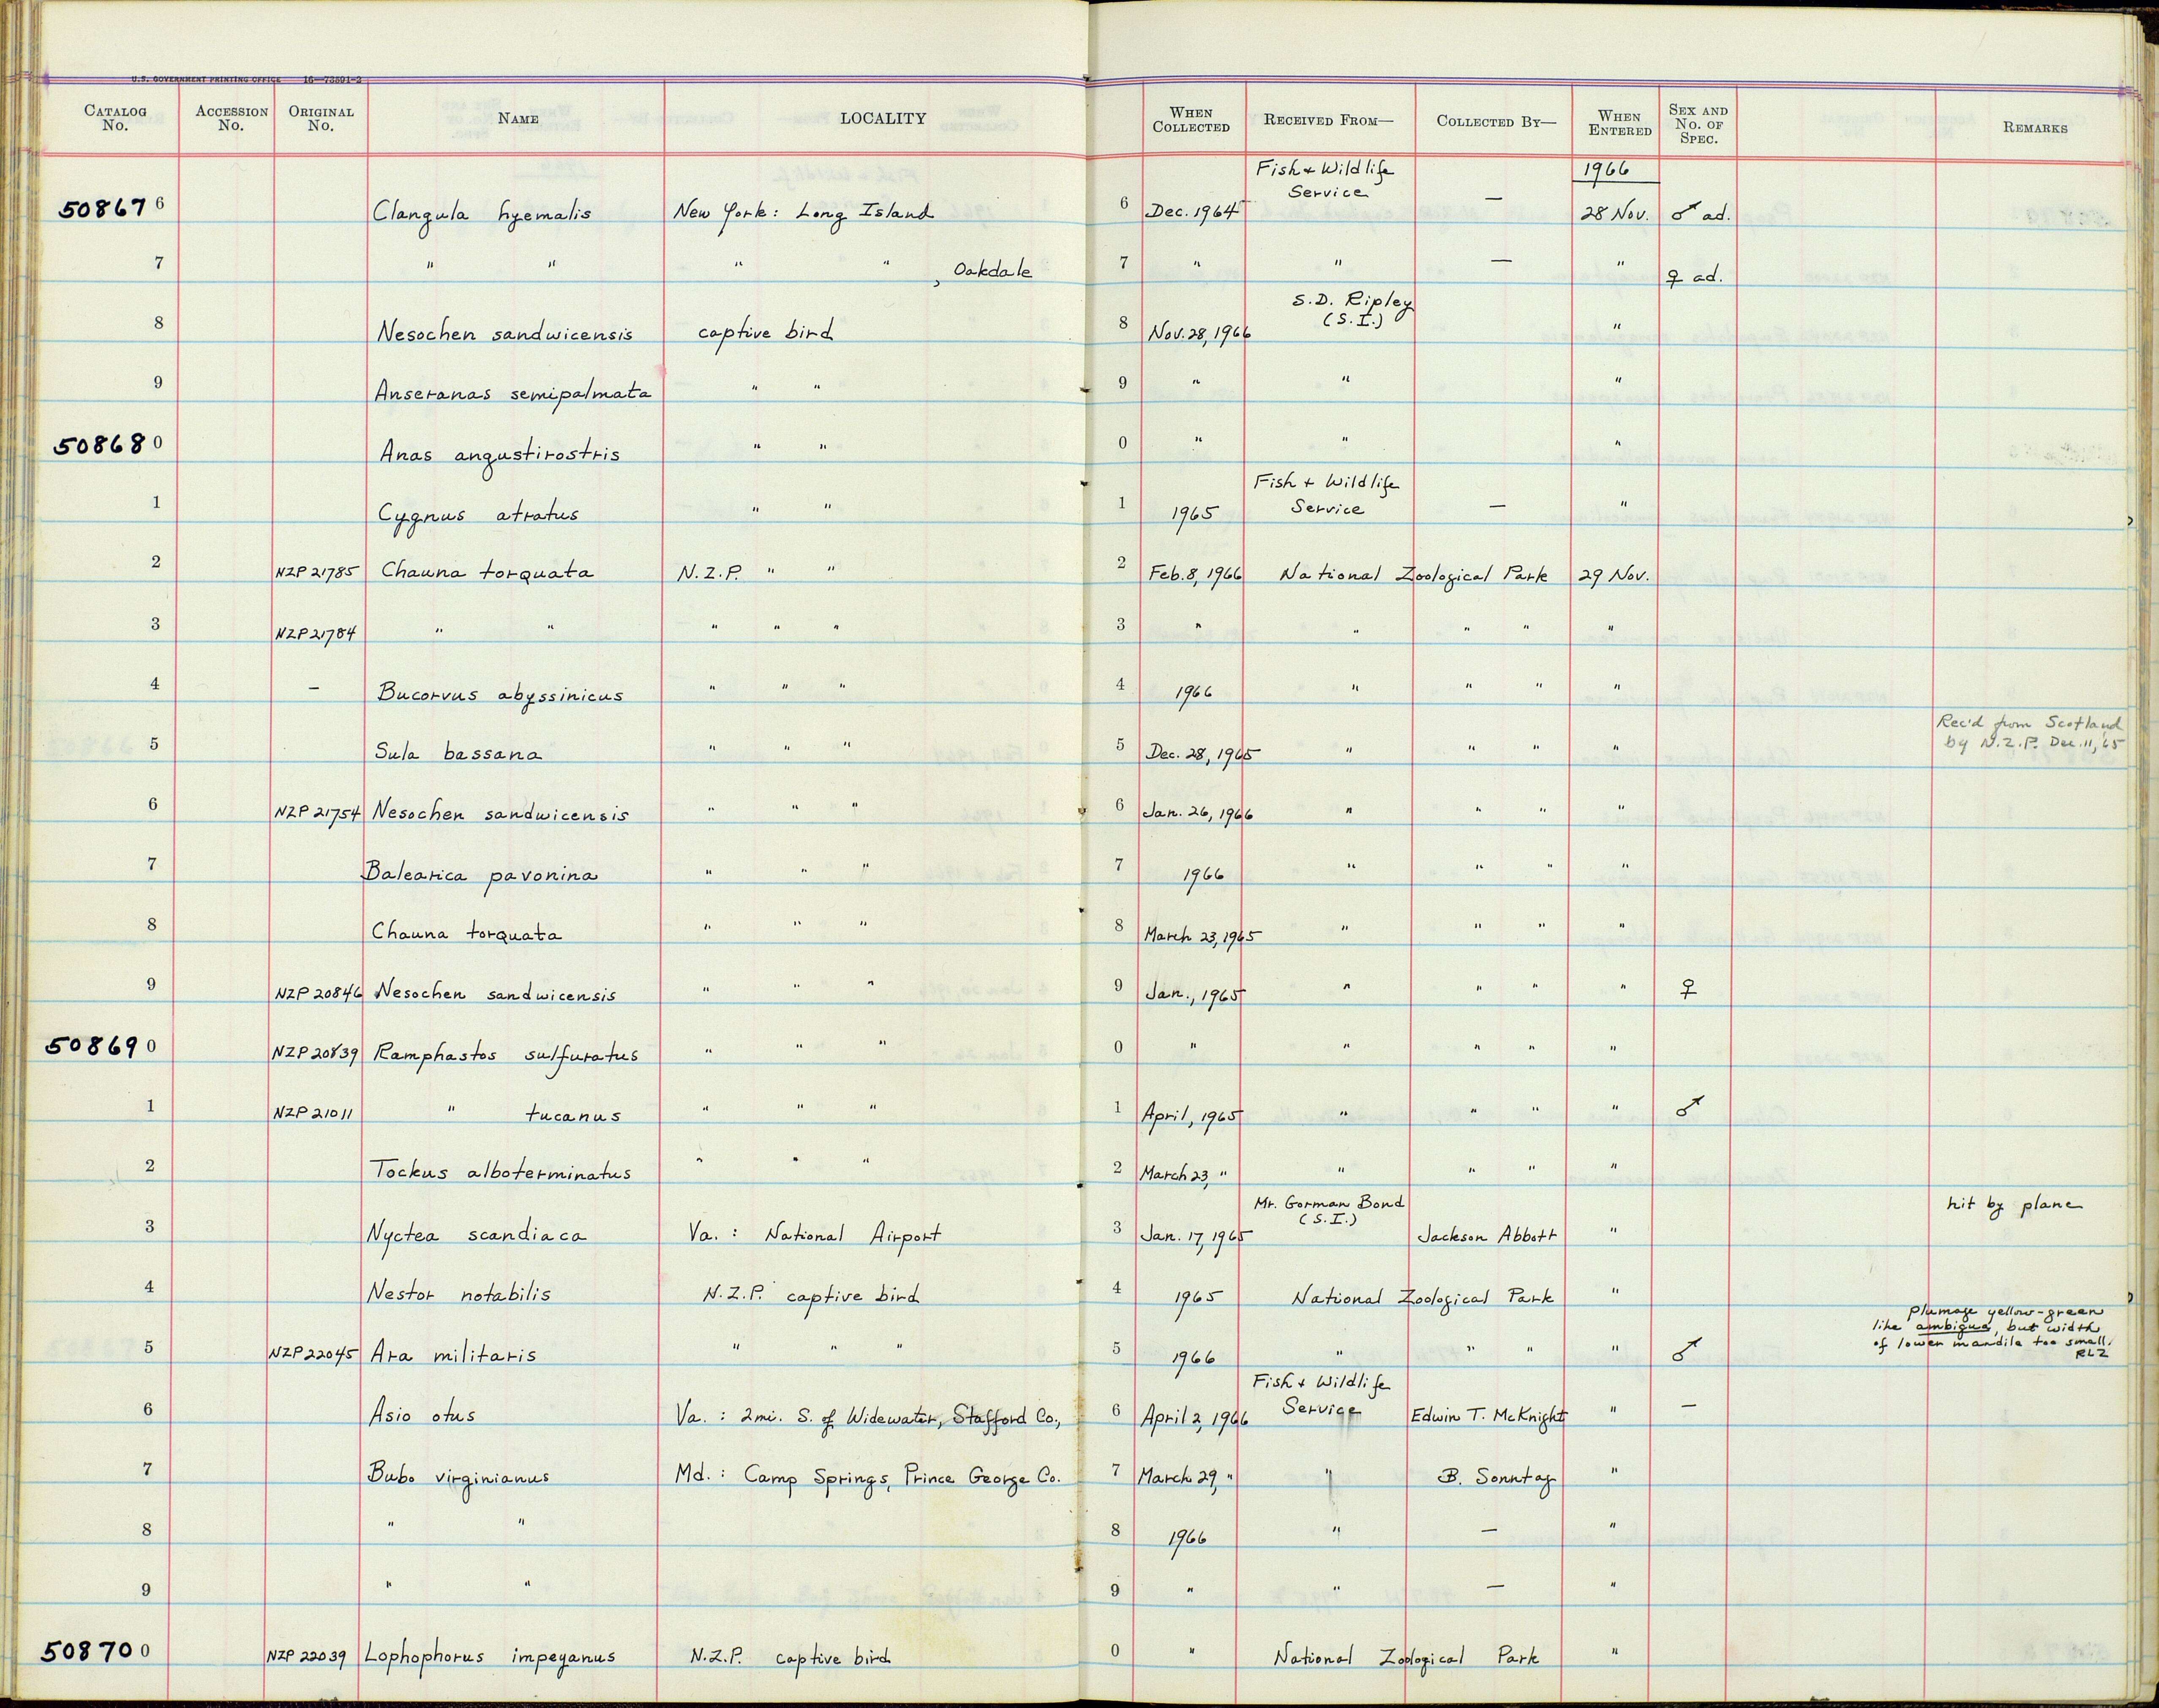 U.S. GOVERNMENT PRINTING OFFICE 16—73591-2
CATALOG No. ACCESSION No. ORIGINAL No. NAME LOCALITY WHEN COLLECTED RECEIVED FROM— COLLECTED BY— WHEN ENTERED SEX AND No. OF SPEC. REMARKS
1966
50867 6 Clangula hyemalis New York: Long Island 6 Dec. 1964 Fish & Wildlife Service — 28 Nov. ♂ ad.
7 " " " " , Oakdale 7 " " — " ♀ ad.
8 Nesochen sandwicensis captive bird 8 Nov. 28, 1966 S.D. Ripley (S.I.) "
9 Anseranas semipalmata " " 9 " " "
50868 0 Anas angustirostris " " 0 " " "
1 Cygnus atratus " " 1 1965 Fish & Wildlife Service — "
2 NZP 21785 Chauna torquata N.Z.P. " " 2 Feb. 8, 1966 National Zoological Park 29 Nov.
3 NZP 21784 " " " " " 3 " " " " "
4 – Bucorvus abyssinicus " " " 4 1966 " " " "
5 Sula bassana " " " 5 Dec. 28, 1965 " " " " Rec'd from Scotland by N.Z.P. Dec. 11, '65
6 NZP 21754 Nesochen sandwicensis " " " 6 Jan. 26, 1966 " " " "
7 Balearica pavonina " " " 7 1966 " " " "
8 Chauna torquata " " " 8 March 23, 1965 " " " "
9 NZP 20846 Nesochen sandwicensis " " " 9 Jan., 1965 " " " " ♀
50869 0 NZP 20839 Ramphastos sulfuratus " " " 0 " " " " "
1 NZP 21011 " tucanus " " " 1 April, 1965 " " " " ♂
2 Tockus alboterminatus " " " 2 March 23, " " " " "
3 Nyctea scandiaca Va. : National Airport 3 Jan. 17, 1965 Mr. Gorman Bond (S.I.) Jackson Abbott " hit by plane
4 Nestor notabilis N.Z.P. captive bird 4 1965 National Zoological Park "
5 NZP 22045 Ara militaris " " " 5 1966 " " " " ♂ plumage yellow-green like ambigua, but width of lower mandile too small. RLZ
6 Asio otus Va. : 2 mi. S. of Widewater, Stafford Co., 6 April 2, 1966 Fish & Wildlife Service Edwin T. McKnight " —
7 Bubo virginianus Md. : Camp Springs, Prince George Co. 7 March 29, " " B. Sonntag "
8 " " 8 1966 " — "
9 " " 9 " " — "
50870 0 NZP 22039 Lophophorus impeyanus N.Z.P. captive bird 0 " National Zoological Park "